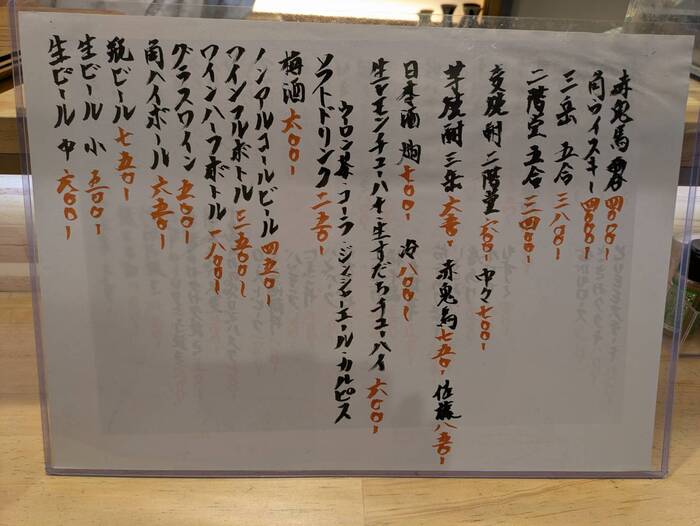 生ビール 中 六〇〇-
生ビール 小 五〇〇-
瓶ビール 七五〇-
角ハイボール 六五〇-
グラスワイン 五〇〇-
ワインハーフボトル 一八〇〇-
ワインフルボトル 三五〇〇-
ノンアルコールビール 四五〇-
梅酒 六〇〇-
ソフトドリンク 二五〇-
ウーロン茶・コーラ・ジンジャーエール・カルピス
生レモンチューハイ・生すだちチューハイ 六〇〇-
日本酒 燗 七〇〇- 冷 八〇〇-
芋焼酎 三岳 六五〇- 赤兎馬 七五〇- 佐藤 八五〇-
麦焼酎 二階堂 六〇〇- 中々 七〇〇-
二階堂 五合 三四〇〇-
三岳 五合 三八〇〇-
角ウィスキー 四〇〇〇-
赤兎馬 四合 四〇〇〇-